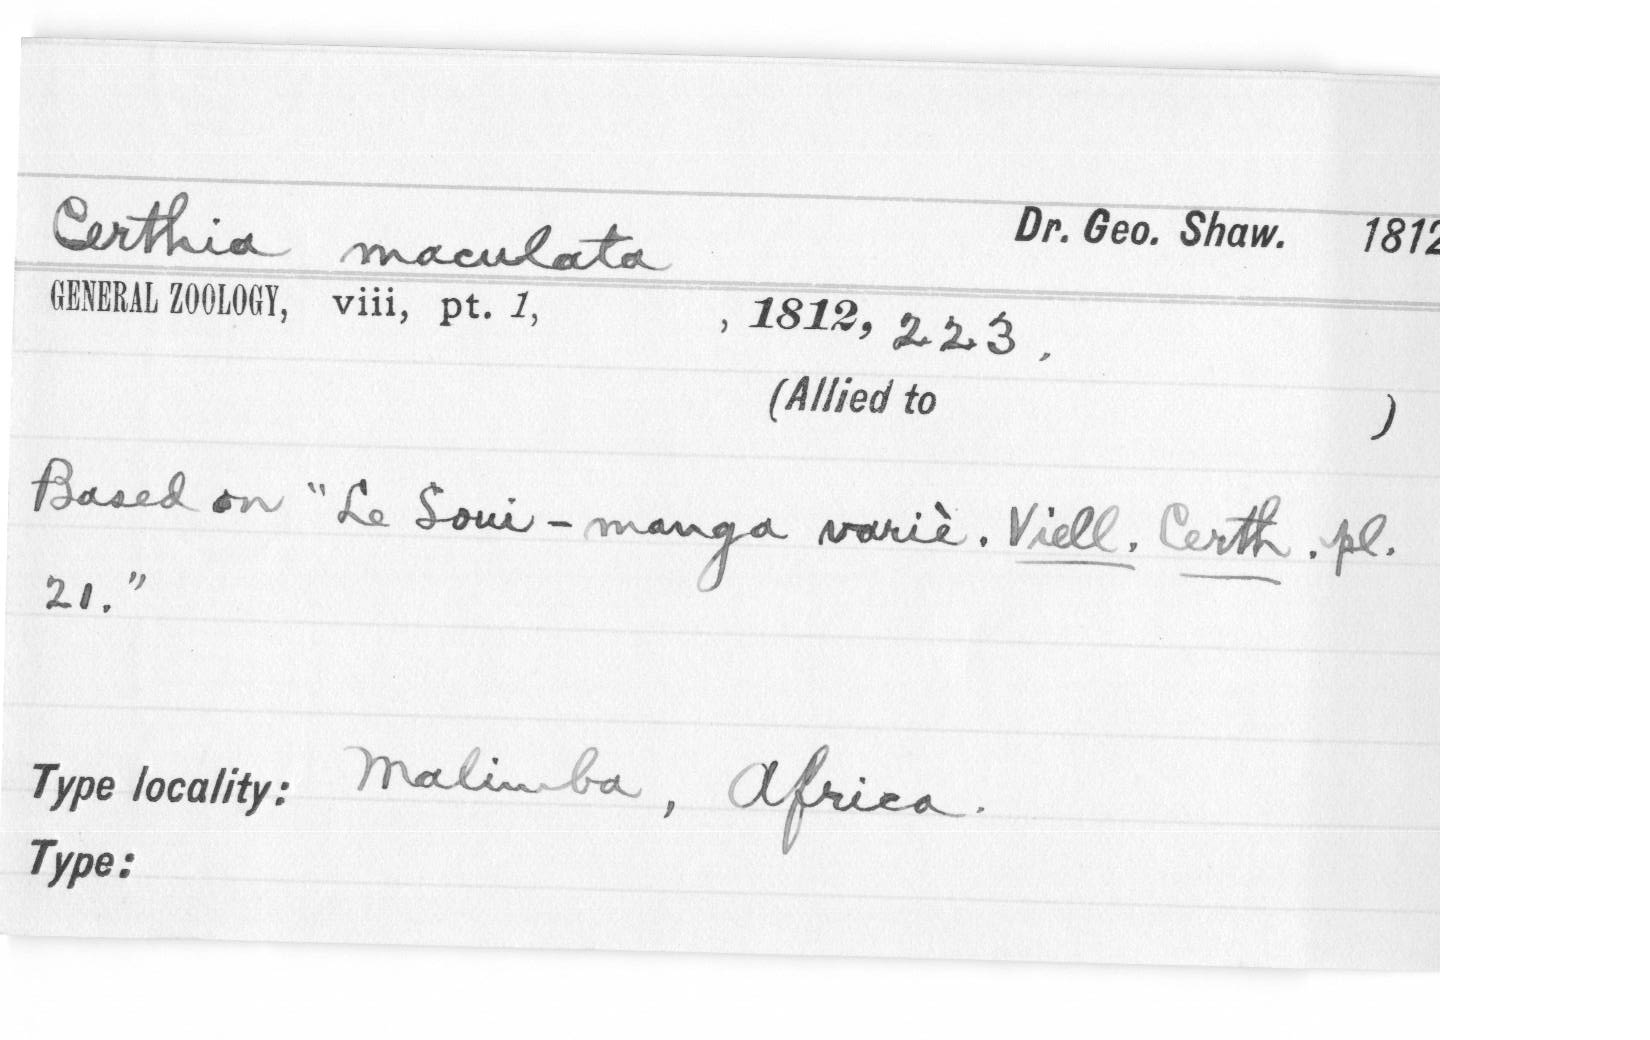 Certhia maculata Dr. Geo. Shaw. 1812
GENERAL ZOOLOGY, viii, pt. 1, , 1812, 223.
(Allied to )
Based on "Le Soui-manga variè. Viell. Certh. pl.
21."
Type locality: Malimba, Africa.
Type: